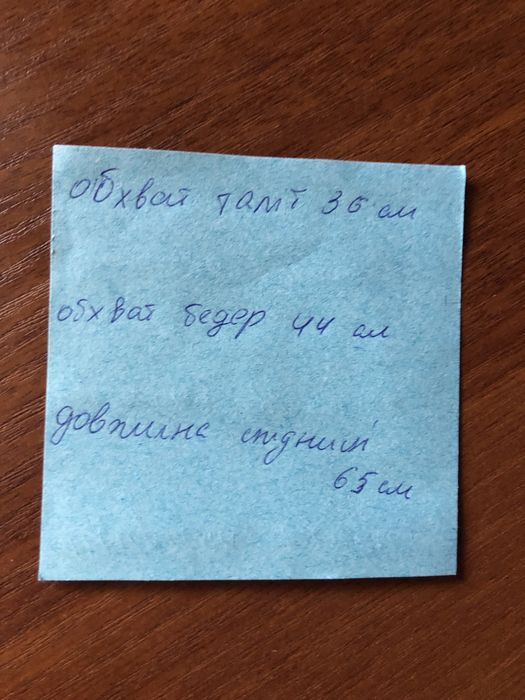 обхват талї 36 см
обхват бедер 44 см
довжина спідниці
65 см